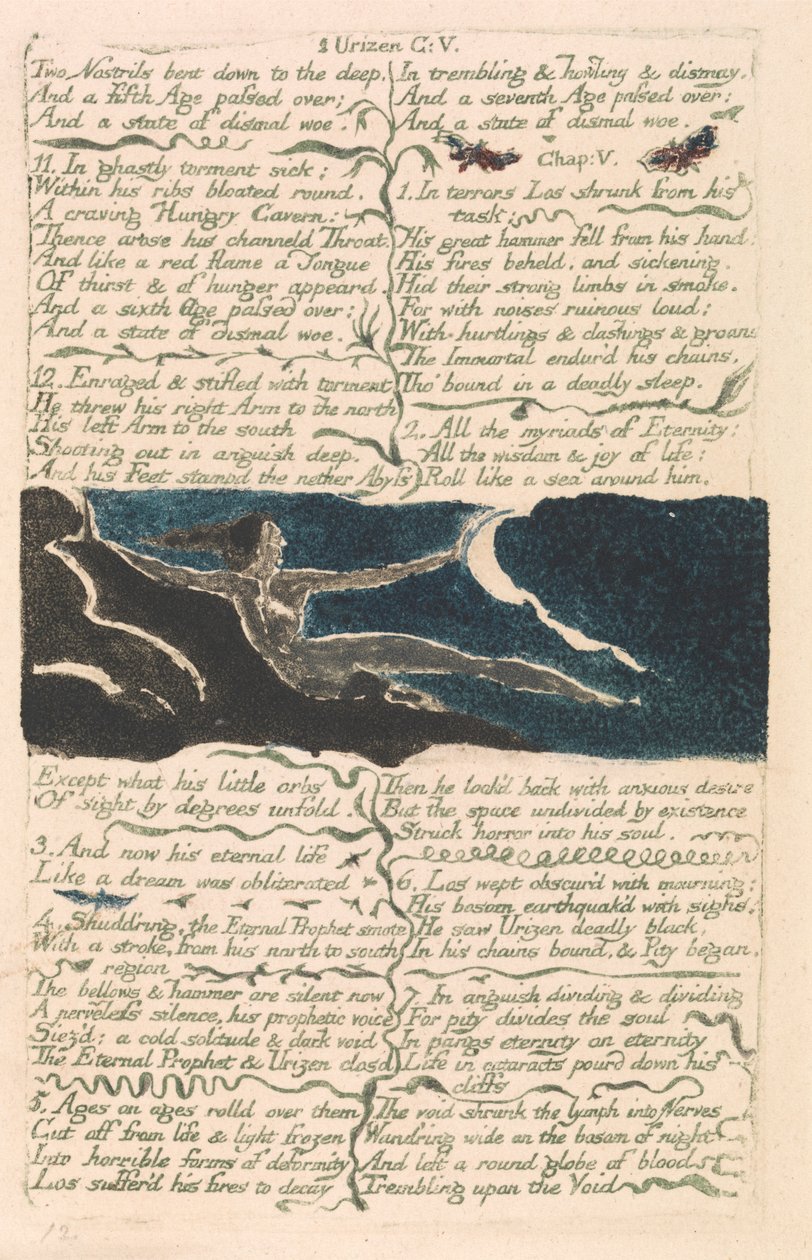 1 Urizen C: V.
Two Nostrils bent down to the deep.
And a fifth Age passed over;
And a state of dismal woe.
11. In ghastly torment sick;
Within his ribs bloated round.
A craving Hungry Cavern:
Thence arose his channeld Throat.
And like a red flame a Tongue
Of thirst & of hunger appeard.
And a sixth Age passed over:
And a state of dismal woe.
12. Enraged & stifled with torment
He threw his right Arm to the north
His left Arm to the south
Shooting out in anguish deep.
And his Feet stampd the nether Abyss
In trembling & howling & dismay.
And a seventh Age passed over:
And a state of dismal woe.
Chap: V.
1. In terrors Los shrunk from his
task:
His great hammer fell from his hand:
His fires beheld, and sickening.
Hid their strong limbs in smoke.
For with noises ruinous loud;
With hurtlings & clashings & groans
The Immortal endur'd his chains,
Tho' bound in a deadly sleep.
2. All the myriads of Eternity:
All the wisdom & joy of life:
Roll like a sea around him.
Except what his little orbs
Of sight by degrees unfold.
3. And now his eternal life
Like a dream was obliterated
4. Shudd'ring, the Eternal Prophet smote
With a stroke, from his north to south
region
The bellows & hammer are silent now
A nerveless silence, his prophetic voice
Siez'd; a cold solitude & dark void
The Eternal Prophet & Urizen clos'd
5. Ages on ages rolld over them
Cut off from life & light frozen
Into horrible forms of deformity
Los suffer'd his fires to decay
Then he look'd back with anxious desire
But the space undivided by existence
Struck horror into his soul.
6. Los wept obscur'd with mourning:
His bosom earthquak'd with sighs;
He saw Urizen deadly black,
In his chains bound, & Pity began.
7. In anguish dividing & dividing
For pity divides the soul
In pangs eternity on eternity
Life in cataracts pourd down his
cliffs
The void shrunk the lymph into Nerves
Wandring wide on the bosom of night
And left a round globe of blood
Trembling upon the Void